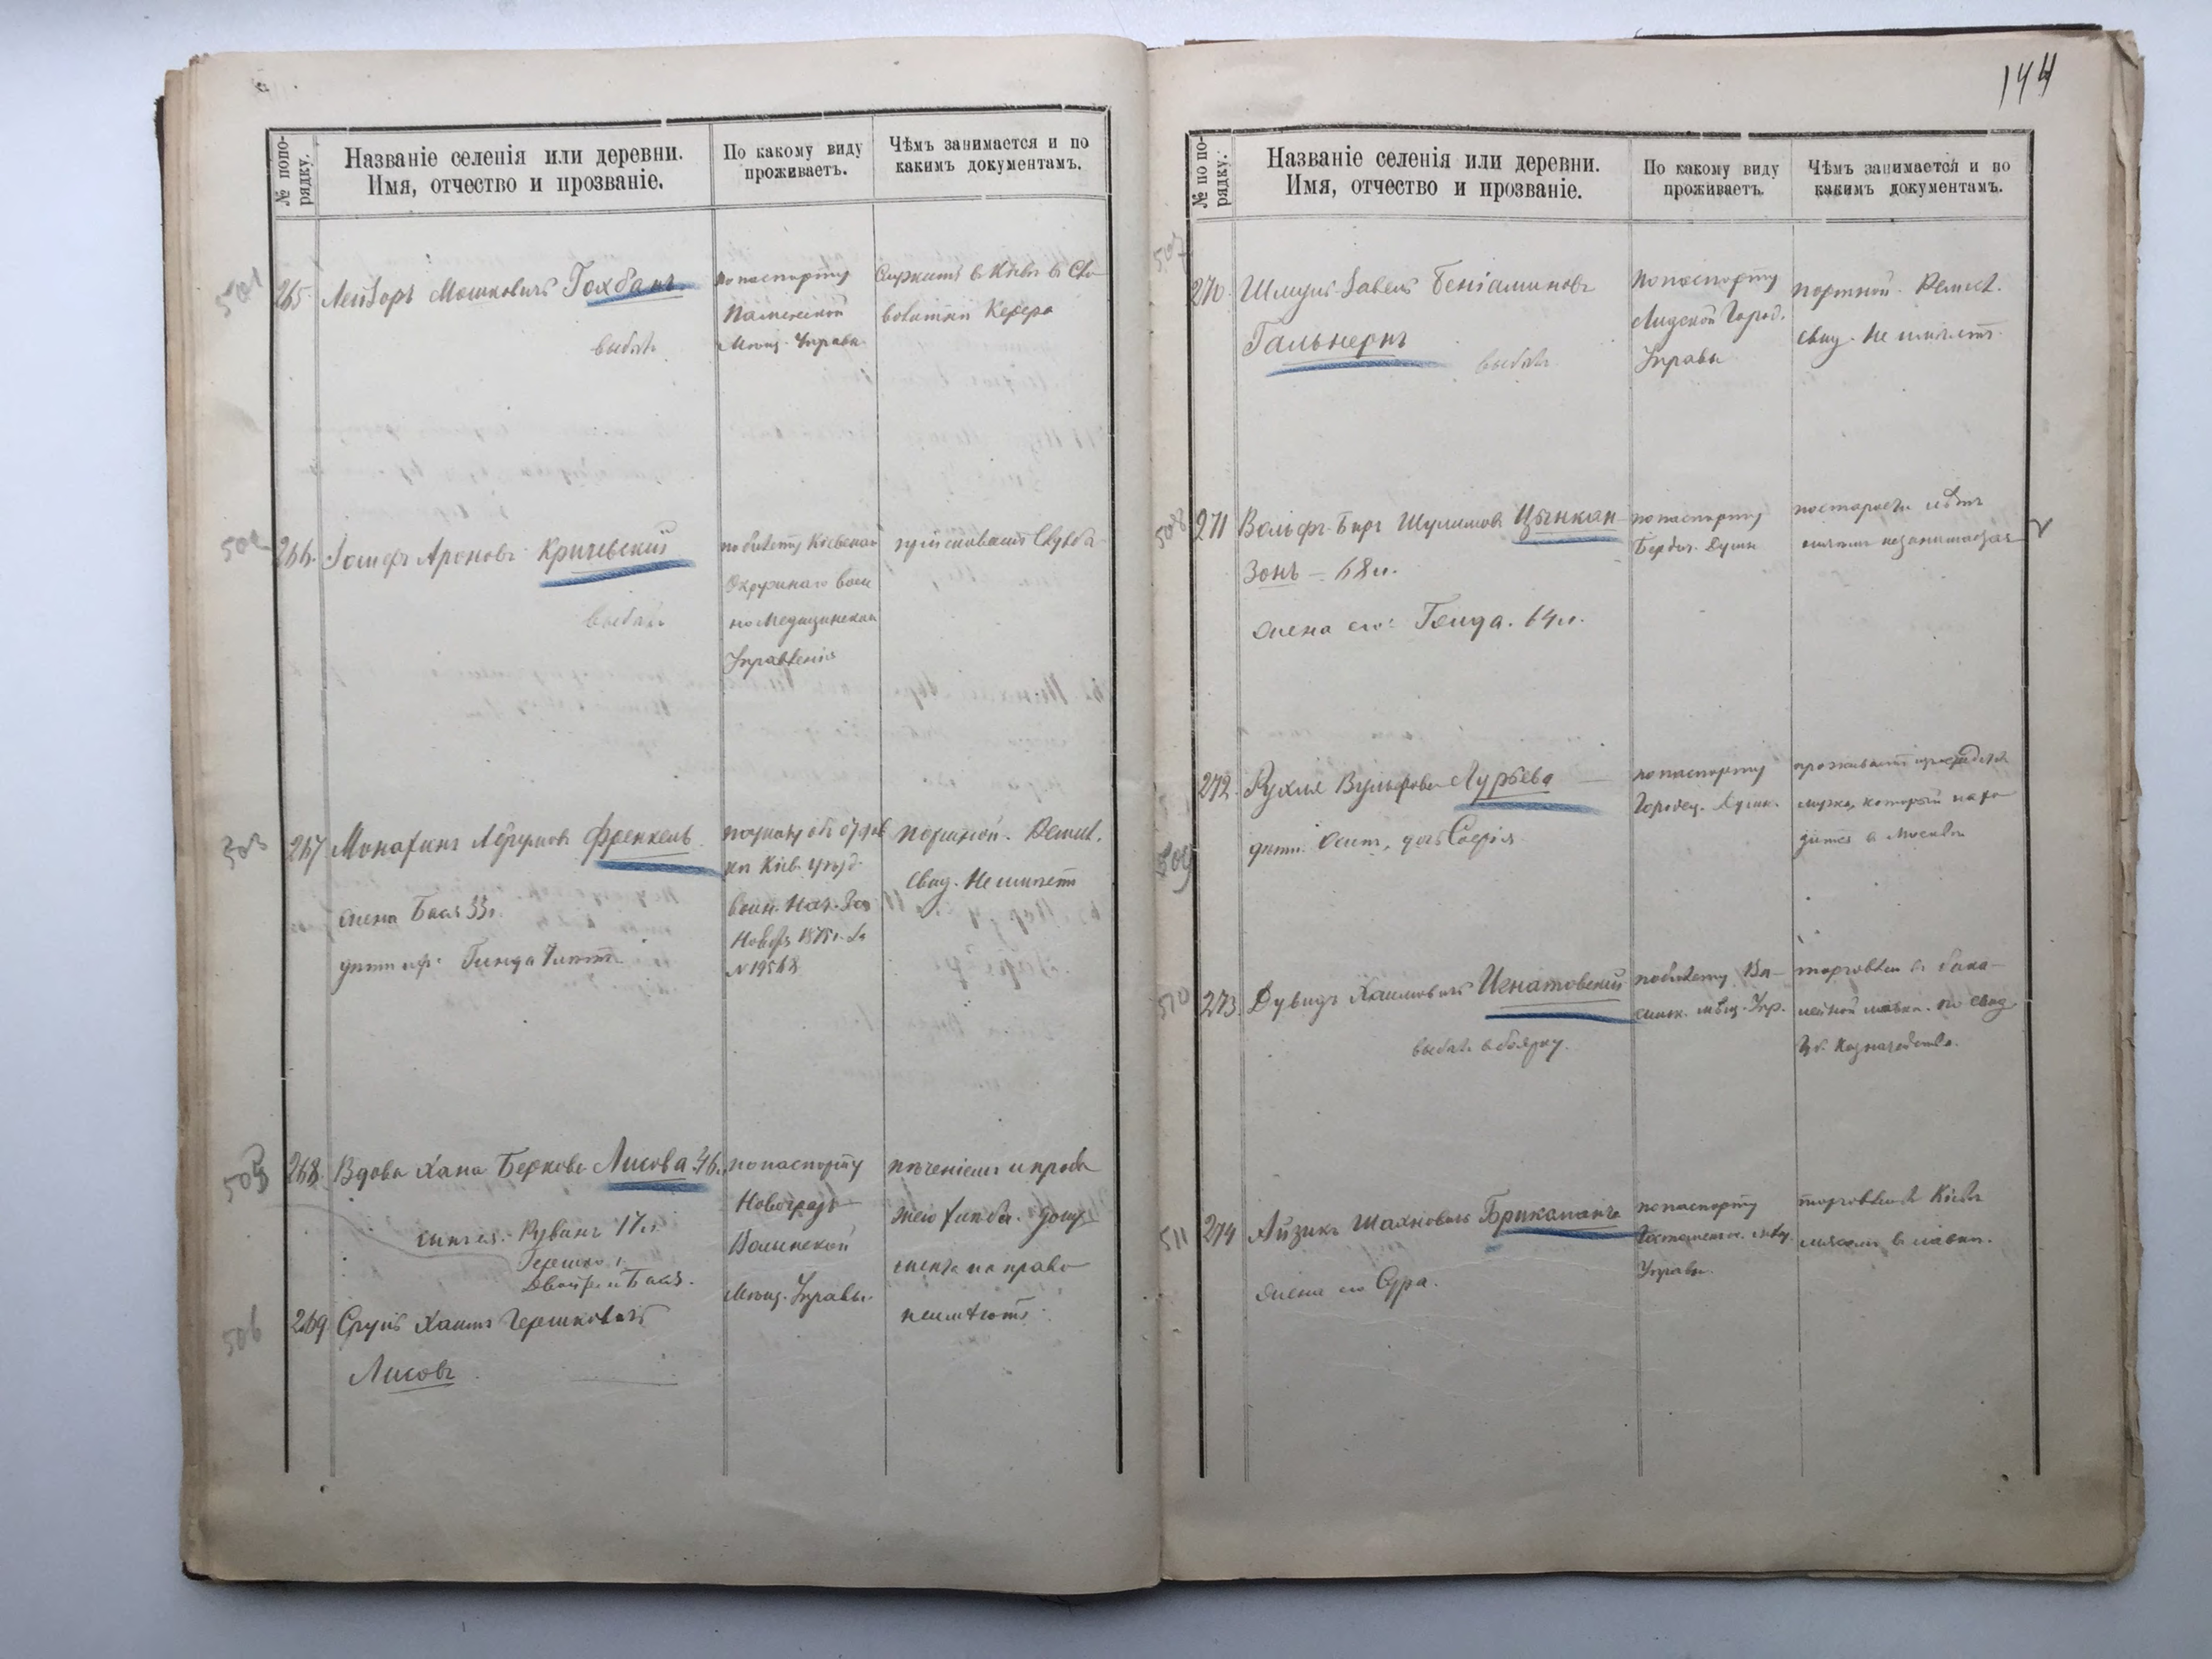 144
№ попо-
рядку.
Названіе селенія или деревни.
Имя, отчество и прозваніе.
По какому виду
проживаетъ.
Чѣмъ занимается и по
какимъ документамъ.
501
265. Лейзоръ Мошковичъ Гохбанъ
выбылъ
по паспорту
Мѣщ. Управы
Служитъ в Кіевѣ в
502
266. Іосифъ Ароновъ Кричевскій
выбылъ
по билету Кіевскаго
Окружнаго Воен
но Медицинскаго
Управленія
503
267 Френкель
жена Бася 33 г.
дѣти их: Гинда 7 лѣтъ
Кіев. уѣзд.
Воин. Нач.
Ноябр 1875 г. за
№ 19568
портной. Ремесл.
свид. Не имѣетъ
505
268. Вдова Хана Беркова Лисова 46.
сынъ ея. Рувинъ 17 л.
Гершко
Двойра и Бася.
по паспорту
Новоградъ
Волынской
Мѣщ. Управы.
печеніемъ и прода
жею хлѣба. Доку
мента на право
неимѣютъ.
506
269. Сруль Хаимъ Гершковичъ
Лисовъ
№ по по-
рядку.
Названіе селенія или деревни.
Имя, отчество и прозваніе.
По какому виду
проживаетъ.
Чѣмъ занимается и по
какимъ документамъ.
507
270. Шмуль Завель Беніаминовъ
Гальперпъ
выбылъ
По паспорту
Лидской Город.
Управы
портной. Ремесл.
свид. Не имѣетъ.
508
271 Вольфъ-Беръ Шулимовъ Цынкан
зонъ – 68 л.
жена его: Генда. 64 л.
по паспорту
Бердич. Думы
по старости лѣтъ
ничѣмъ незанимается
509
272. Рухля Вульфова Лурьева
дѣти: Осип, дочь Софія
по паспорту
Городец.
проживаетъ
мужа, который нахо
дится в Москвѣ
510
273. Дувидъ Хаимовичъ Игнатовскій
выбылъ в боярку.
по билету Ва-
сильк. мѣщ. Упр.
торговлею в бака-
лейной лавкѣ. по свид
Казначейства.
511
274 Айзикъ Шахновичъ Брикманъ
жена его Сура.
по паспорту
Управы.
торговлею в Кіевѣ
мясом в лавкѣ.